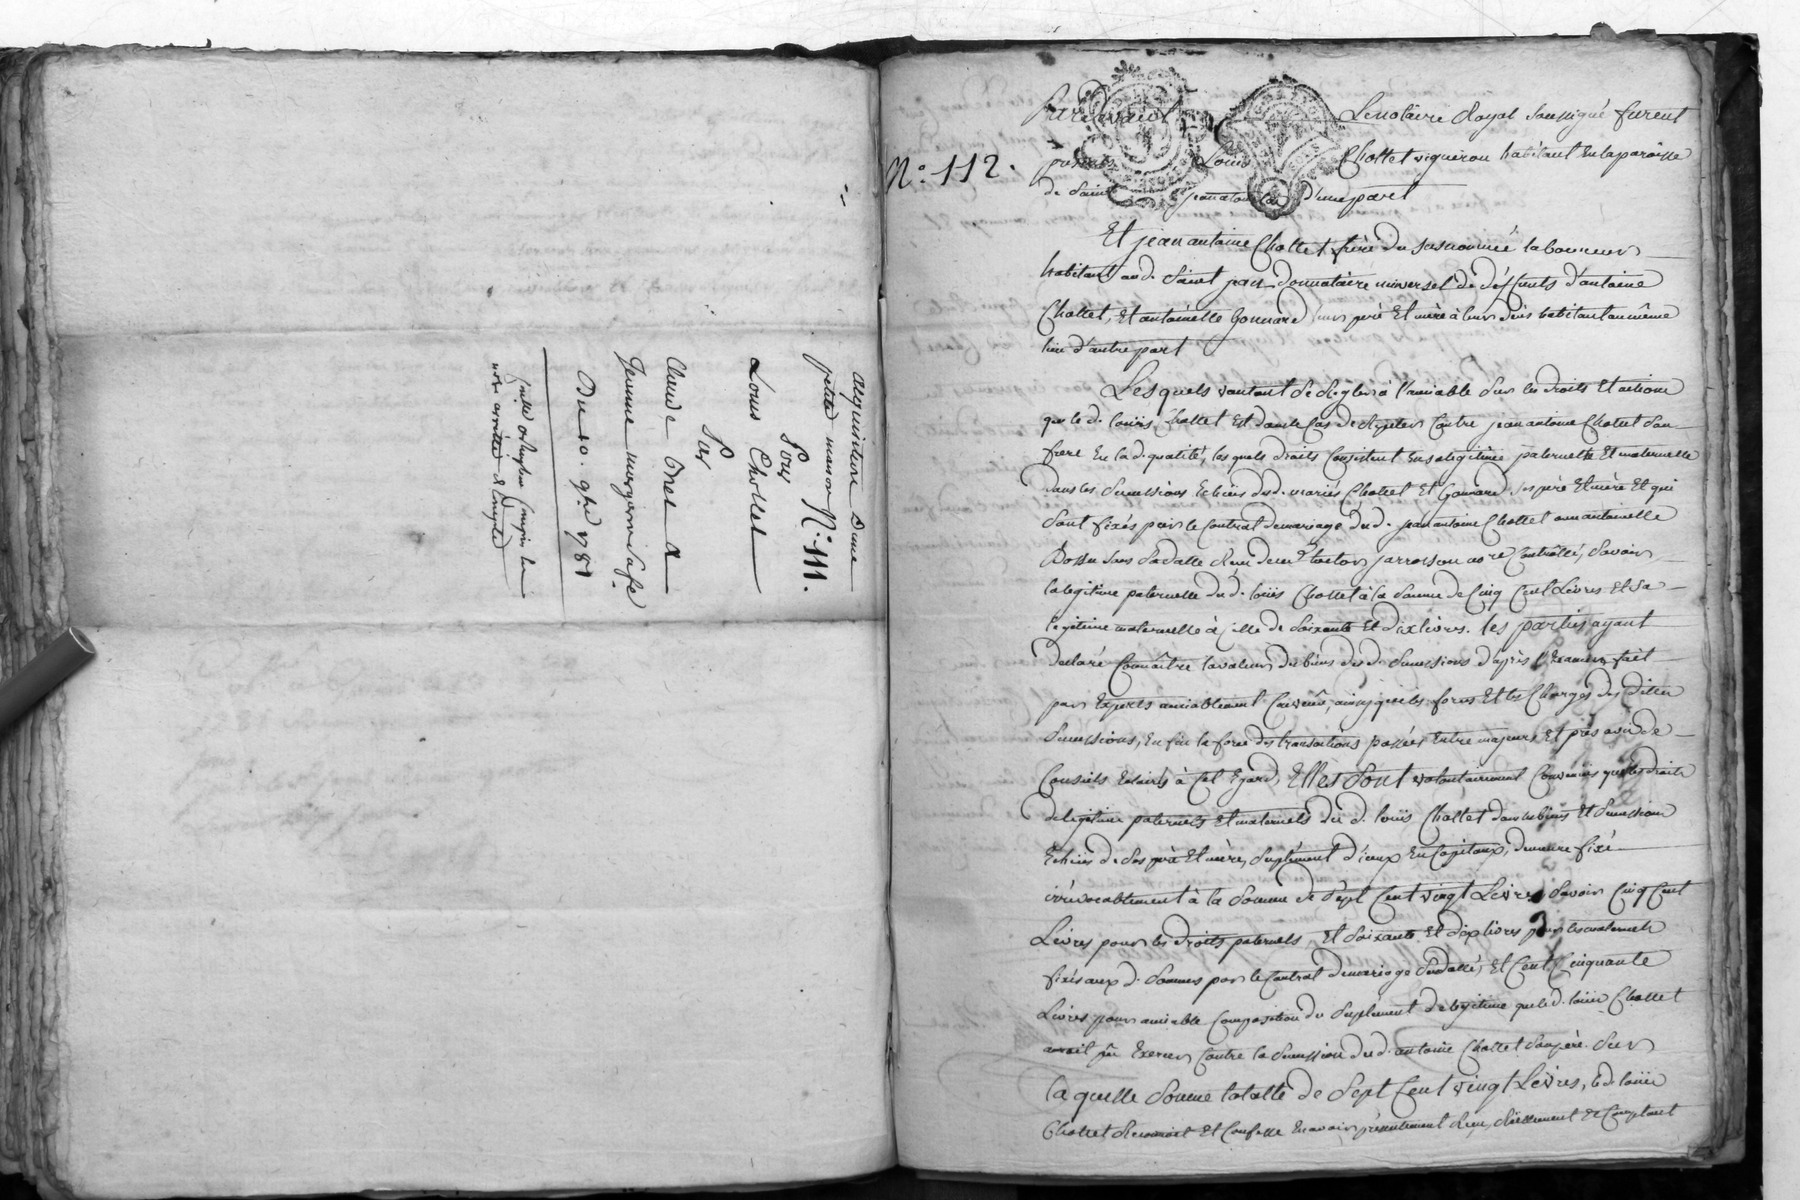 acquisition d'une
petite maison N.o 111.
Pour
Louis Chollet
Par
Claude Brel &
Jeanne
Du 10. 9.bre 1781
N.o 112.
Pardevant Le notaire Royal soussigné furent
presents Louis Chollet vigneron habitant en la paroisse
de Saint jean d'une part
Et jean antoine Chollet frere du susnommé laboureur
habitant aud. Saint jean donnataire universel de deffunts d'antoine
Chollet, Et antoinette Gonnard leurs père Et mère à leur deces habitant au même
lieu d'autre part
Lesquels voulant se Regler à l'amiable sur les droits Et actions
que le d. louis Chollet Est dans le Cas de Repeter Contre jean antoine Chollet son
frere En la d. qualité, lesquels droits Consistent En sa légitime paternelle Et maternelle
dans les Successions Echües desd. mariés Chollet Et Gonnard ses père Et mère Et qui
sont fixés par le Contrat de mariage dud. jean antoine Chollet avec antoinette
sous sa datte Reçu Controllé, Savoir
la légitime paternelle du d. louis Chollet à la Somme de Cinq Cent Livres Et Sa
legitime maternelle à Celle de Soixante Et dix livres. les parties ayant
declaré Connaître la valeur des biens desd. Successions d'après l'Examen fait
par Experts amiablement Convenus, ainsy que les forces Et les Charges des dittes
Successions, Enfin la force des transactions passées Entre majeurs, Et pris avis de
Conseils Eclairés à Cet Egard, Elles Sont volontairement Convenües que les droits
de légitime paternels Et maternels du d. louis Chollet dans les biens Et Successions
Echües de Ses père Et mère, Suplément d'iceux En Capitaux, demeure fixé
irrévocablement à la Somme de Sept Cent vingt Livres Savoir Cinq Cent
Livres pour les droits paternels, Et Soixante Et dix livres pour les maternels
fixés aux d. Sommes par le Contrat de mariage Susdatté, Et Cent Cinquante
Livres pour amiable Composition du Suplément de legitime que le d. louis Chollet
avait pû Exercer Contre la Succession dud. antoine Chollet Son père. Sur
la quelle Somme totalle de Sept Cent vingt Livres, le d. louis
Chollet Reconnoit Et Confesse En avoir présentement Reçu, Réellement & Comptant